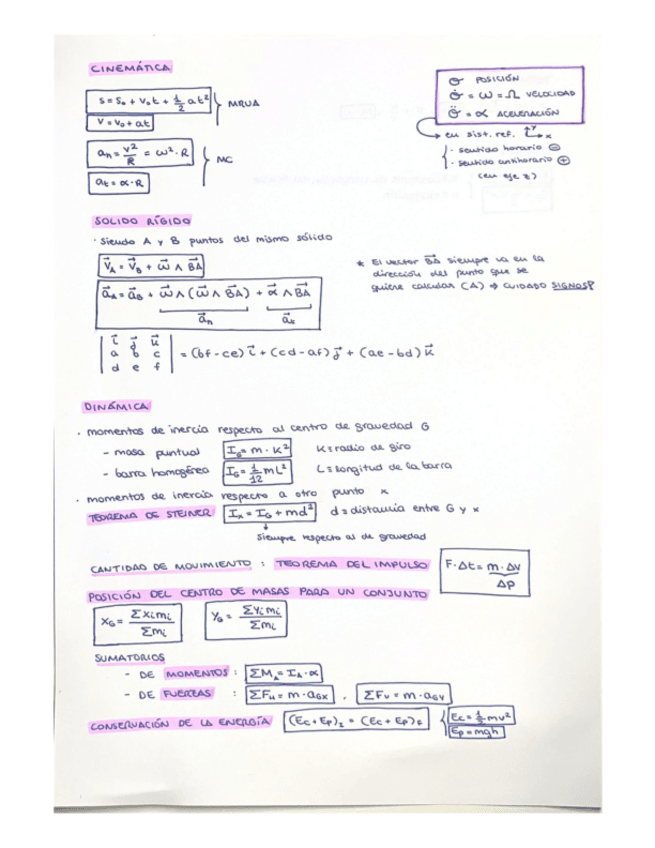 CINEMÁTICA
s = s₀ + v₀t + 1/2 at² } MRUA
v = v₀ + at
aₙ = v²/R = ω²·R } MC
aₜ = α·R
θ POSICIÓN
θ̇ = ω = Ω VELOCIDAD
θ̈ = α ACELERACIÓN
en sist. ref. y x
· sentido horario ⊖
· sentido antihorario ⊕
(en eje z)
SOLIDO RÍGIDO
· Siendo A y B puntos del mismo sólido
v⃗A = v⃗B + ω⃗ ∧ BA⃗
a⃗A = a⃗B + ω⃗ ∧ (ω⃗ ∧ BA⃗) + α⃗ ∧ BA⃗
a⃗ₙ a⃗ₜ
* El vector BA⃗ siempre va en la
dirección del punto que se
quiere calcular (A) ⇒ CUIDADO SIGNOS!
| i⃗ j⃗ k⃗ |
| a b c | = (bf - ce) i⃗ + (cd - af) j⃗ + (ae - bd) k⃗
| d e f |
DINÁMICA
· momentos de inercia respecto al centro de gravedad G
- masa puntual I_G = m · K² K = radio de giro
- barra homogénea I_G = 1/12 mL² L = longitud de la barra
· momentos de inercia respecto a otro punto x
TEOREMA DE STEINER Iₓ = I_G + md² d = distancia entre G y x
Siempre respecto al de gravedad
CANTIDAD DE MOVIMIENTO : TEOREMA DEL IMPULSO F·Δt = m·Δv
Δp
POSICIÓN DEL CENTRO DE MASAS PARA UN CONJUNTO
X_G = Σxᵢmᵢ/Σmᵢ Y_G = Σyᵢmᵢ/Σmᵢ
SUMATORIOS
- DE MOMENTOS : ΣM_A = I_A·α
- DE FUERZAS : ΣF_H = m·a_Gx , ΣF_V = m·a_Gy
CONSERVACIÓN DE LA ENERGÍA (Ec + Ep)_I = (Ec + Ep)_F { Ec = 1/2 mv²
Ep = mgh